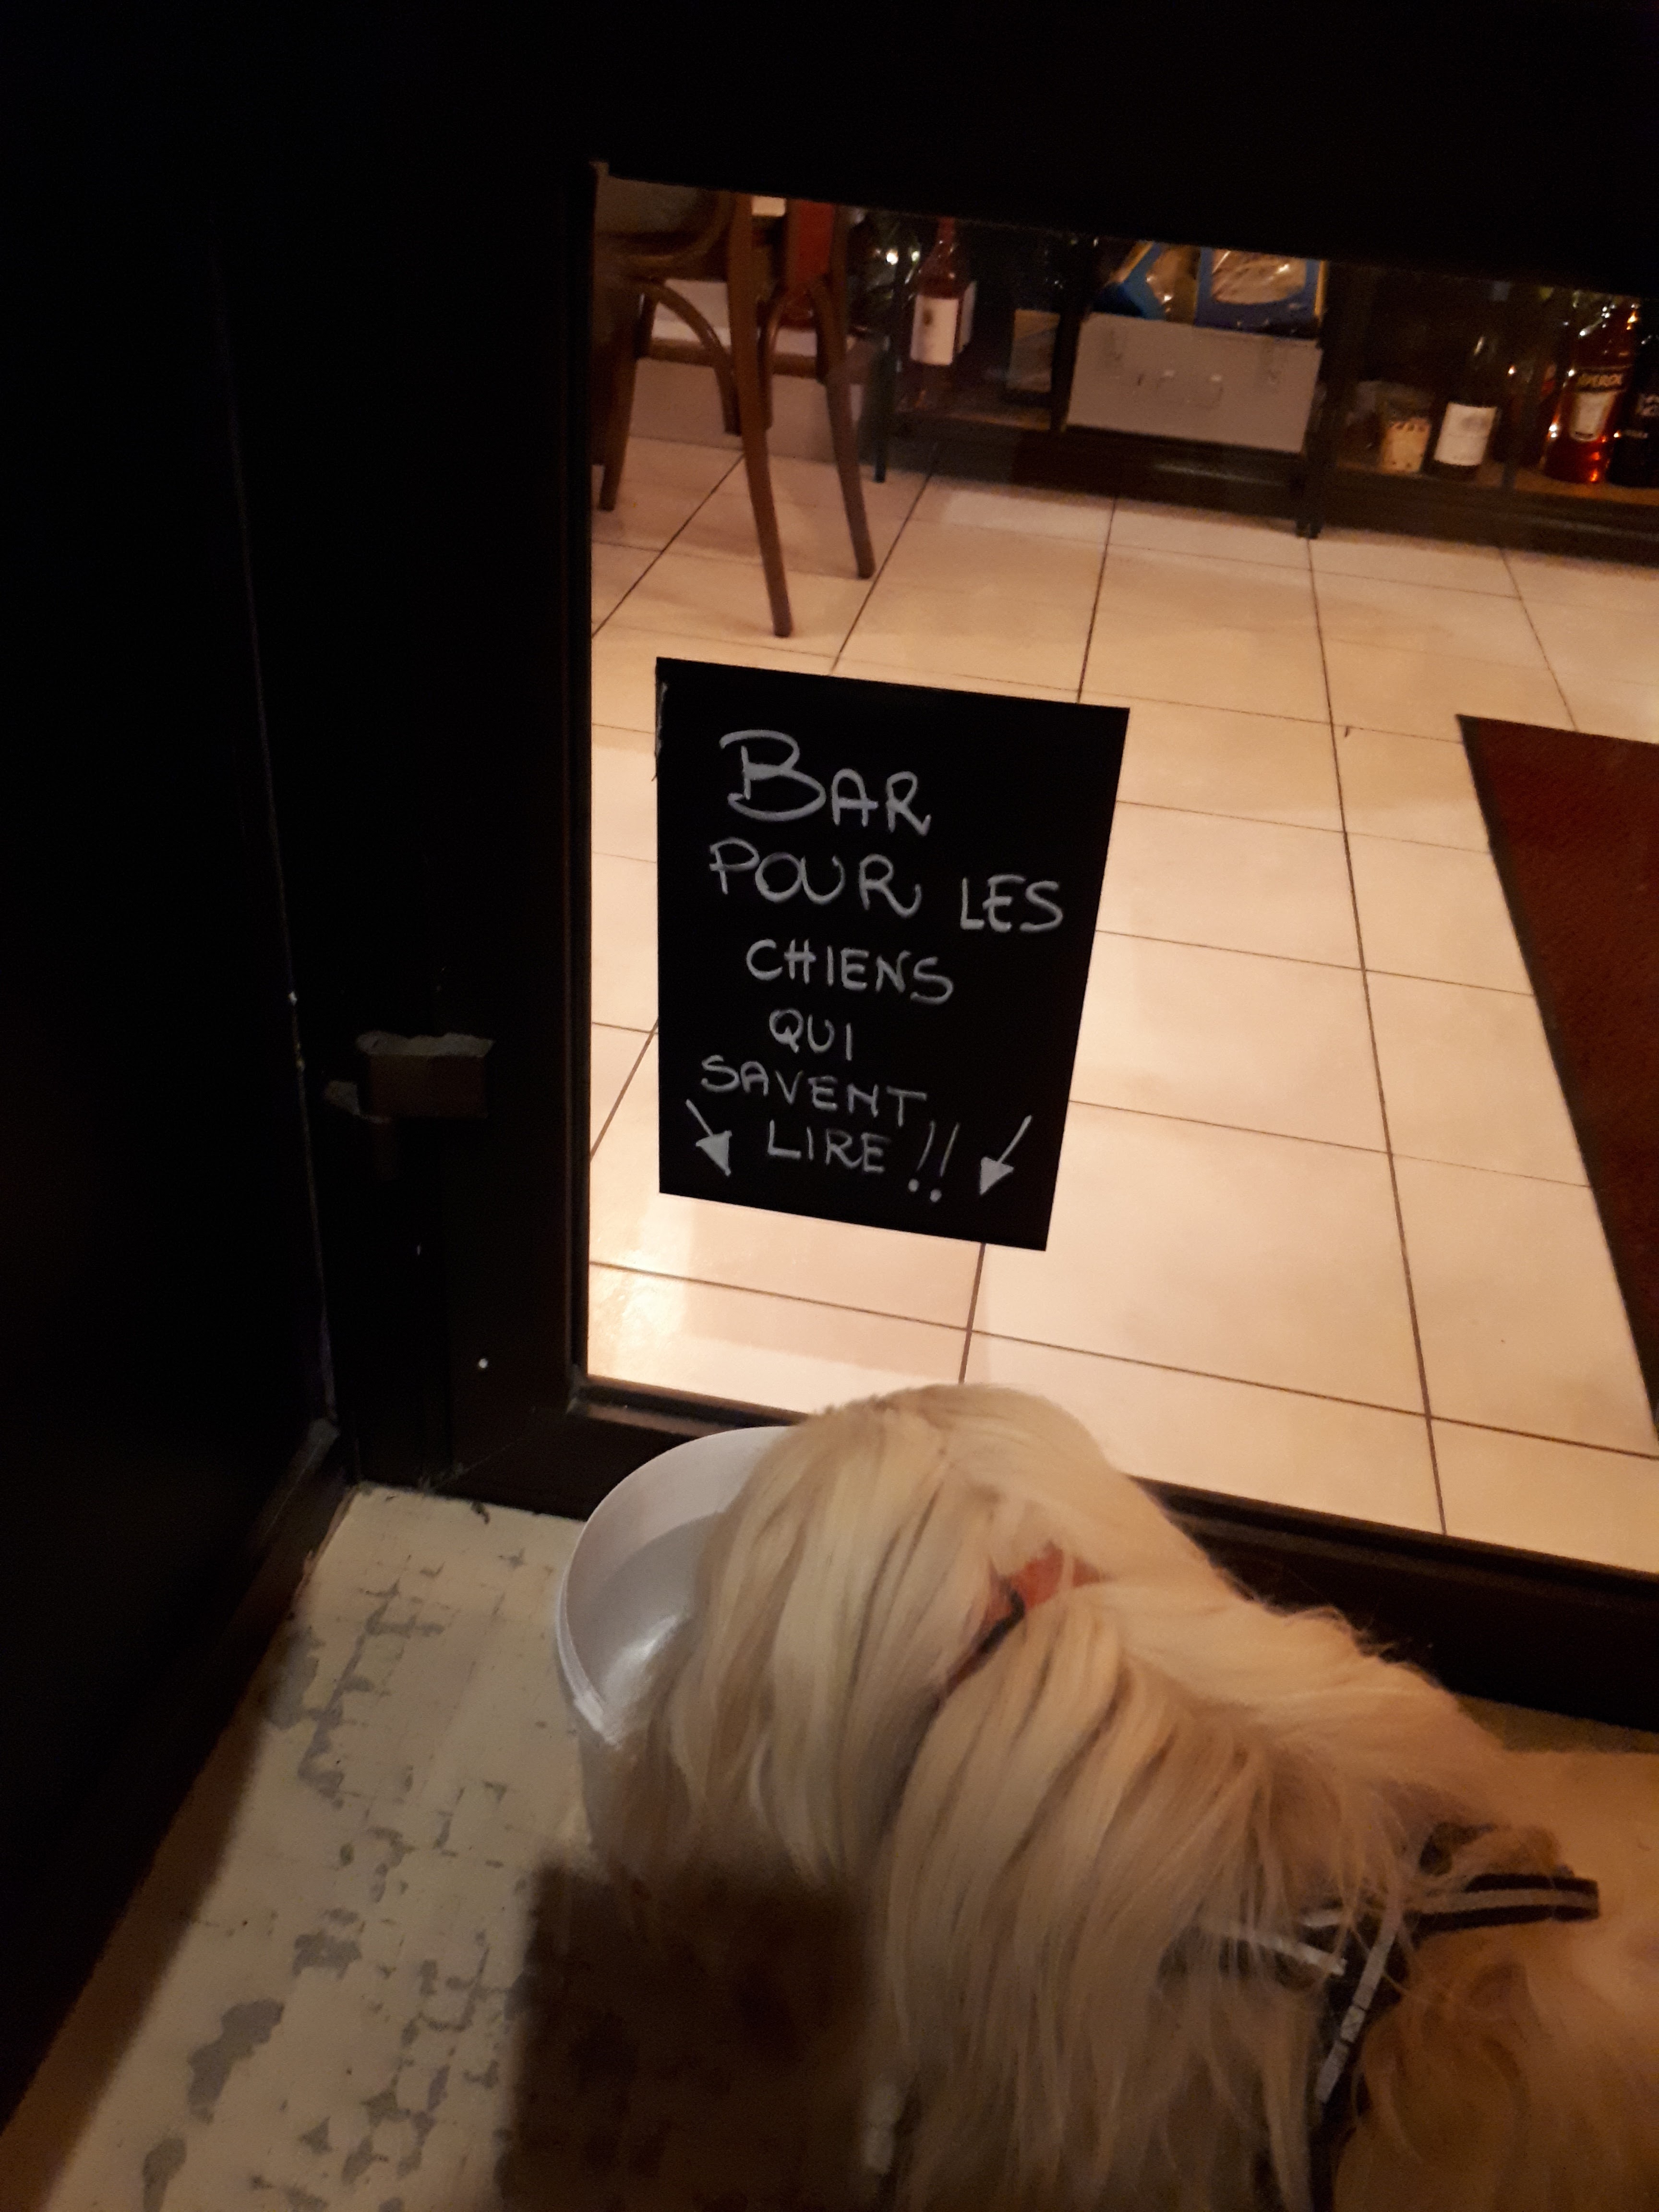 BAR
POUR LES
CHIENS
QUI
SAVENT
LIRE !!
APEROL